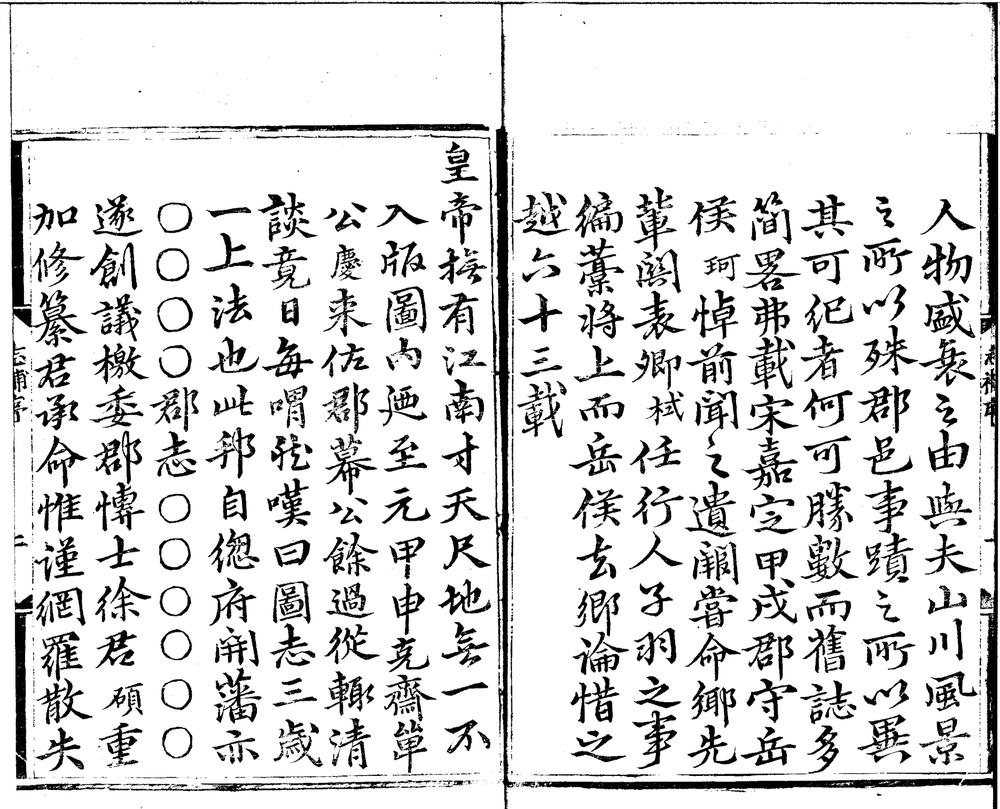 人物盛衰之由與夫山川風景
之所以殊郡邑事蹟之所以異
其可紀者何可勝數而舊誌多
簡畧弗載宋嘉定甲戌郡守岳
侯珂悼前聞之遺闕嘗命鄉先
軰闗表卿栻任行人子羽之事
編藁將上而岳侯去鄉論惜之
越六十三載
皇帝撫有江南寸天尺地無一不
入版圖內廼至元甲申克齋單
公慶来佐郡幕公餘過從輙清
談竟日每喟然嘆曰圖志三歲
一上法也此邦自總府開藩亦
〇〇〇〇郡志〇〇〇〇〇〇
遂創議檄委郡博士徐君碩重
加修纂君承命惟謹網羅散失